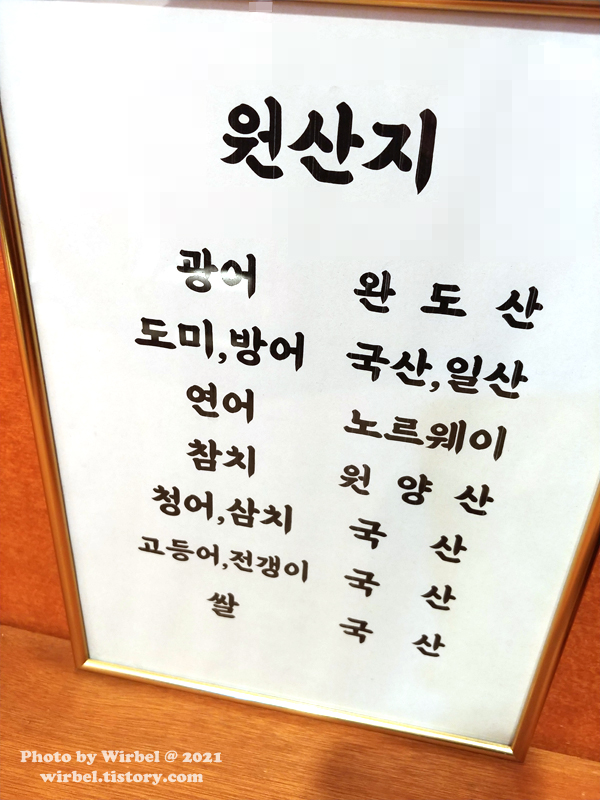 원산지
광어 완 도 산
도미,방어 국산,일산
연어 노르웨이
참치 원 양 산
청어,삼치 국 산
고등어,전갱이 국 산
쌀 국 산
Photo by Wirbel @ 2021
wirbel.tistory.com